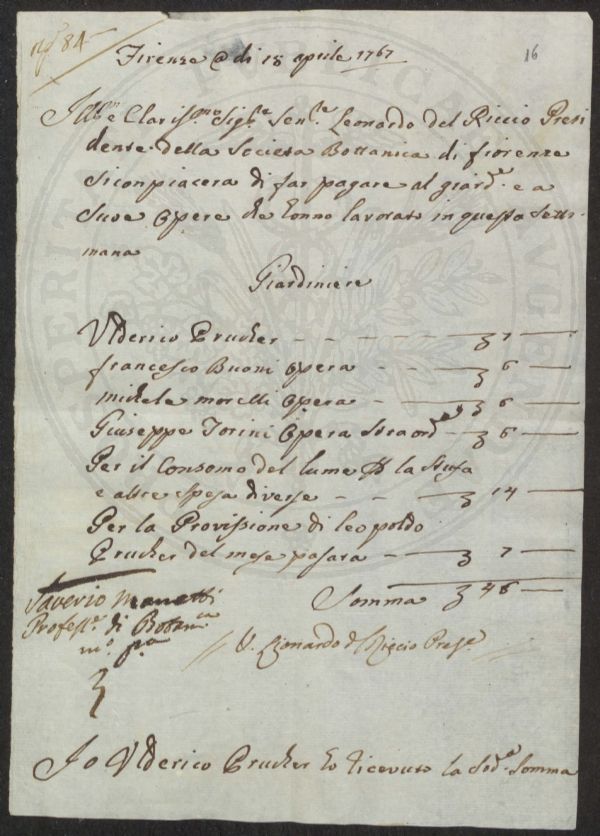 N° 84
16
Firenze @ di 18 aprile 1767
Ill.mo e Clariss.mo Sig.re Sen.re Leonardo del Riccio Presi
dente della Societa Bottanica di fiorenze
Siconpiacera di far pagare al giard.e e a
Suve Opere che Conno lavorato in questa Setti-
mana
Giardiniere
Vlderico Prucker - - - 7 —
francesco Buoni Opera - - 6 —
michele morelli Opera - - 6 —
Giuseppe Torini Opera Straord.a - 6 —
Per il Consomo del lume p la Stufa
e altre Spesa diverse - - 14 —
Per la Provissione di leopoldo
Prucker del mese pasara - 7 —
Somma 46 —
Saverio Manetti
Profess.e di Botan.ca
m.o p.a
V. Lionardo d Riccio Pres.e
Io Vlderico Prucker ho ricevuto la Sod.a Somma